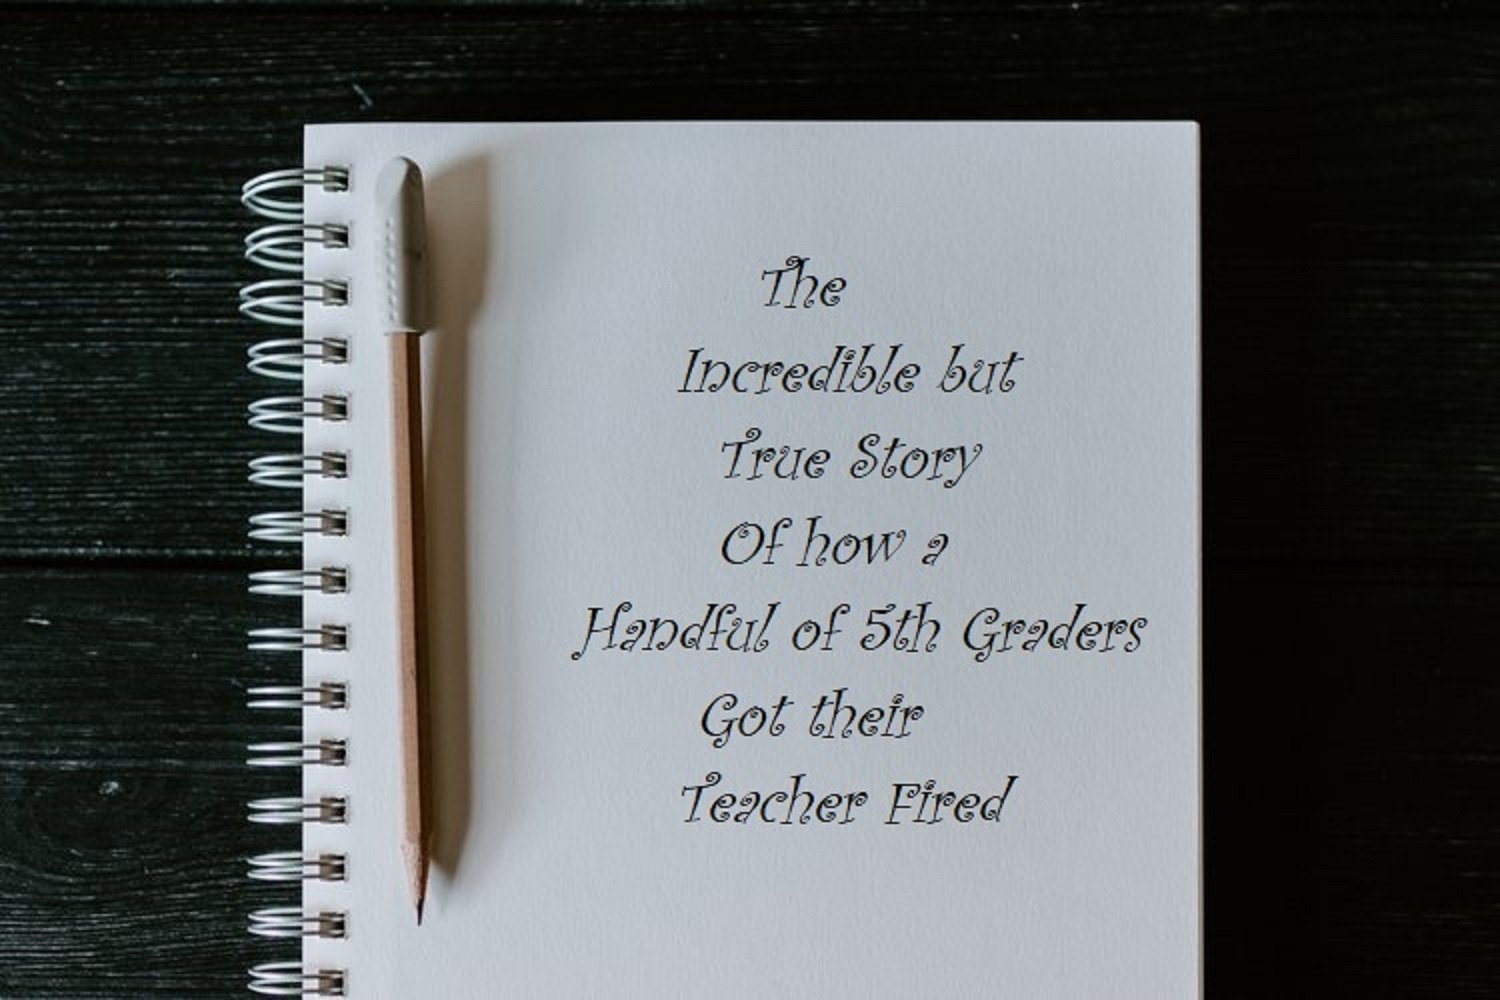 The
Incredible but
True Story
Of how a
Handful of 5th Graders
Got their
Teacher Fired